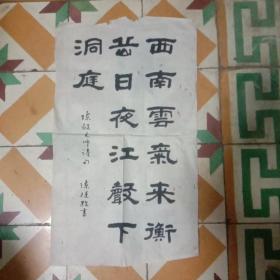 西南雲氣來衡
岳日夜江聲下
洞庭